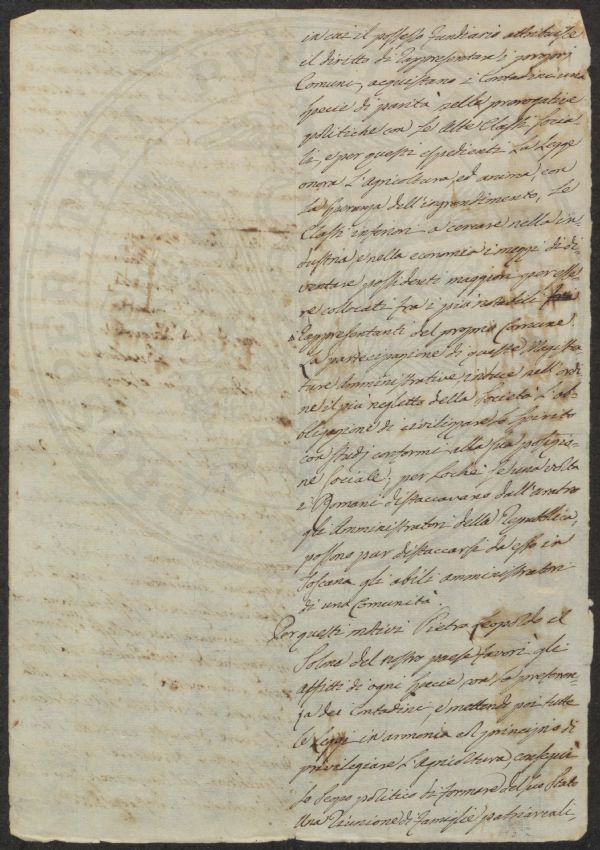 in cui il possesso fundiario attribuisce
il diritto di rappresentare i proprj
Comuni, acquistano i Contadini una
specie di parità nelle prerogative
politiche con le alte Classi socia-
li, e per questi espedienti la Legge
onora l'agricoltura, ed anima, con
la speranza dell'ingrandimento, le
Classi inferiori a cercare nella in-
dustria, e nella economia i mezzi di di-
ventare possidenti maggiori per esse-
re collocati fra i più notabili
Rappresentanti del proprio Comune.
La partecipazione di queste Magistra-
ture Amministrative, induce nell'ordi-
ne il più negletto della Società l'ob-
bligazione di civilizzare lo spirito
con studj conformi alla sua posizio-
ne sociale; per lochè se una volta
i Romani distaccavano dall'aratro
gli Amministratori della Repubblica,
possono pur distaccarsi da esso in
Toscana gli abili amministratori
di una Comunità.
Per questi motivi Pietro Leopoldo il
Solone del nostro paese, favorì gli
affitti di ogni specie, con la preferen-
za dei Contadini, e mettendo poi tutte
le Leggi in armonia col principio di
privilegiare l'Agricoltura conseguì
lo scopo politico di formare del suo Stato
una Riunione di Famiglie patriarcali.